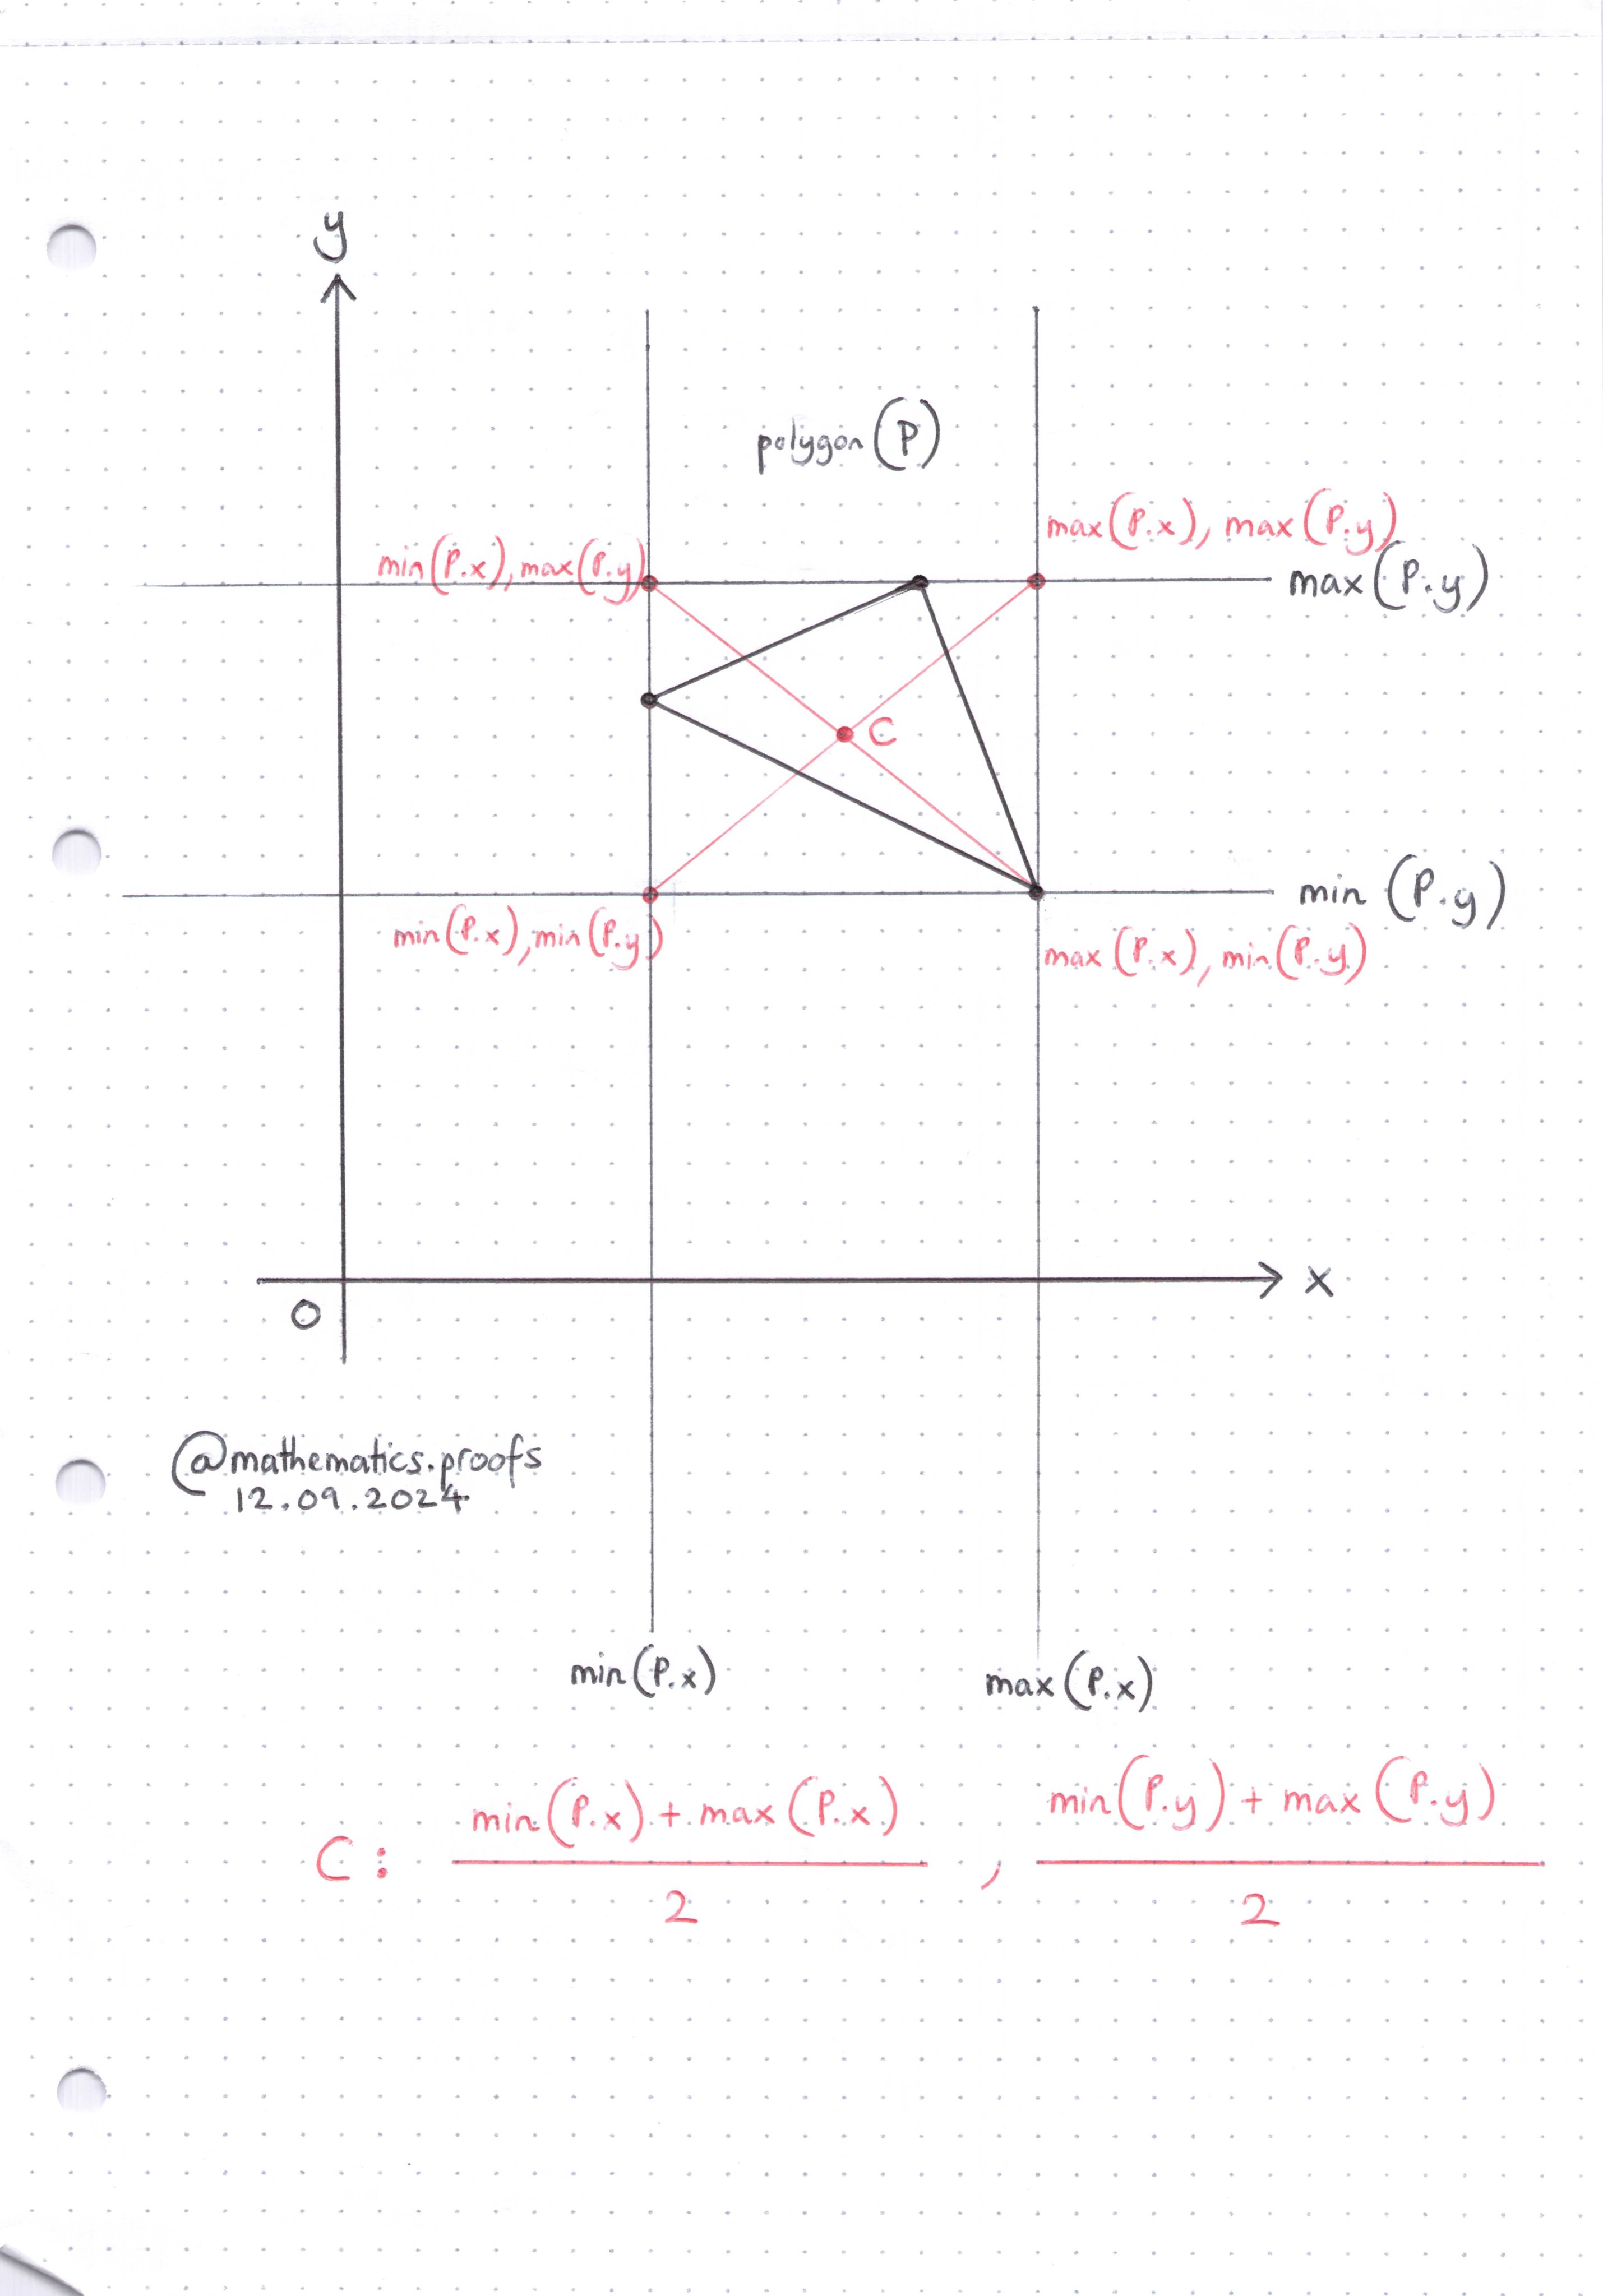 y
polygon (P)
max(P.x), max(P.y)
min(P.x), max(P.y)
max(P.y)
C
min (P.y)
min(P.x), min(P.y)
max (P.x), min(P.y)
x
0
@mathematics.proofs
12.09.2024
min(P.x)
max(P.x)
C: min(P.x) + max(P.x) / 2 , min(P.y) + max(P.y) / 2